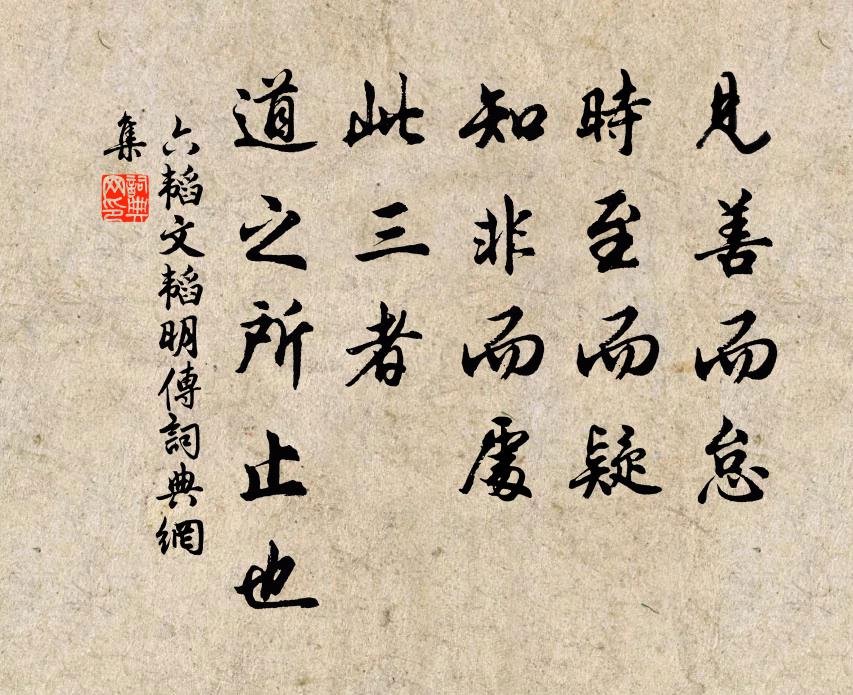 見善而怠
時至而疑
知非而處
此三者
道之所止也
六韜文韜明傳詞典網
集
詞典
网印